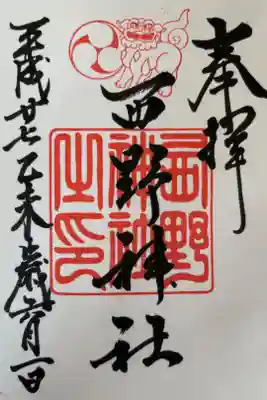 奉拝
西野神社
西野神社之印
平成廿七乙未歳六月一日